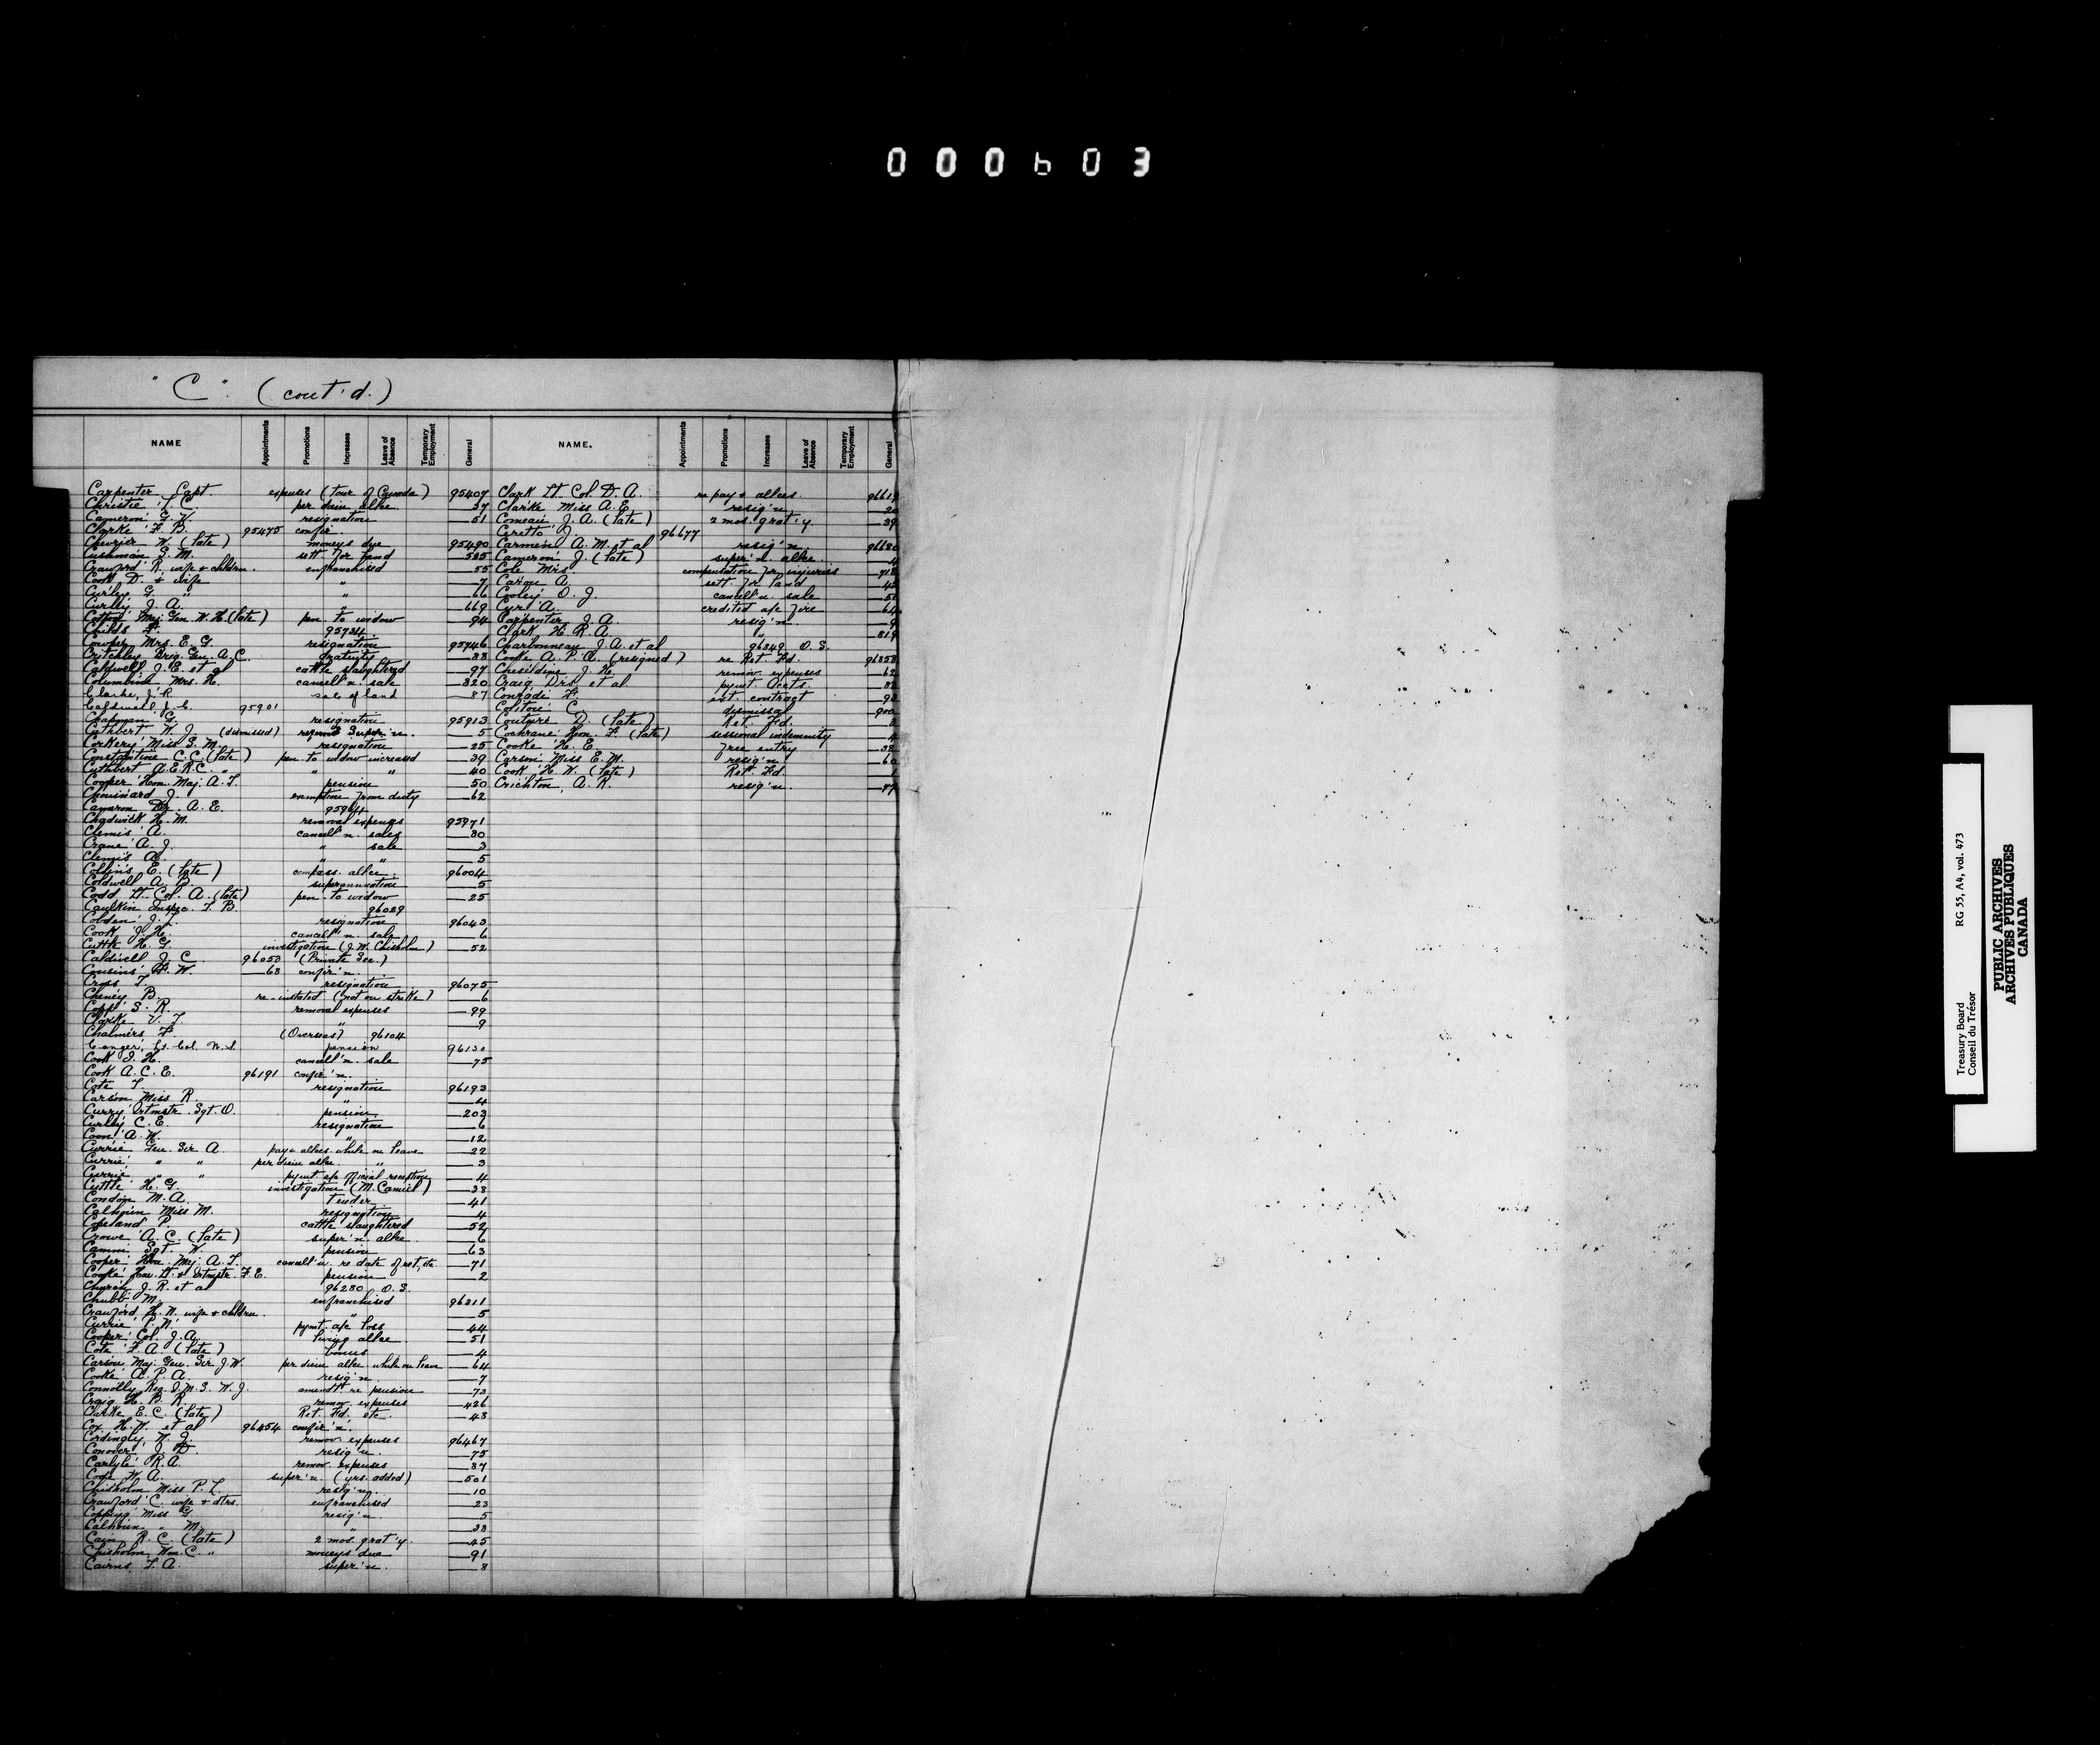 000603
"C" (cont'd.)
NAME Appointments Promotions Increases Leave of Absence Temporary Employment General
Carpenter Capt. expenses (tour of Canada) 95407
Christie L. C. per diem allce 37
Cameron G. V. resignation 51
Clarke F. B. 95475 confir.
Chevrier W. (late) moneys due 95490
Cushman S. M. sett. for land 535
Crawford R. wife & children. enfranchised 55
Cook D. & wife " 7
Curley G. " " 66
Curley J. A. " 669
Cotton Maj. Gen. W. H. (late) pen. to widow 94
Childs F. 95734
Cowper Mrs. E. G. resignation 95746
Critchley Brig. Gen. A. C. Gratuity 88
Caldwell J. E. et al cattle slaughtered 97
Columbine Mrs. H. cancell'n. sale 820
Clarke, J. R. sale of land 87
Caldwell J. C. 95901
Chapman G. resignation 95913
Cuthbert W. J. (dismissed) refund Super'n. 5
Corkery Miss S. M. resignation 25
Constantine C. C. (late) pen. to widow increased 39
Cuthbert A. E. R. C. " " " 40
Cooper Hon. Maj. A. T. pension 50
Chouinard J. exemption from duty 62
Cameron Dr. A. E. 95964
Chadwick H. M. removal expenses 95971
Clemis A. cancell'n. sales 80
Crane A. J. " sale 3
Clemis A. " " 5
Collins E. (late) compass. allce. 96004
Coldwell A. B. superannuation 5
Codd Lt. Col. A. (late) pen. to widow 25
Caulkin Inspec. T. B. 96029
Cobden J. L. resignation 96043
Cook J. H. cancell'n. sale 6
Cuttle H. G. investigation (J. W. Chisholm) 52
Caldwell J. C. 96050 (Private Sec.)
Cousins F. W. 68 confir'n.
Cross T. resignation 96075
Cheney B. re-instated (not on strike) 6
Copp S. R. removal expenses 99
Clarke V. T. " 9
Chalmers F. (Overseas) 96104
Conger, Lt. Col. W. S. pension 96130
Cook I. H. cancell'n. sale 75
Cook A. C. E. 96191 confir'n.
Cote T. resignation 96193
Carson Miss R. " 4
Curry Qrtmstr. Sgt. O. pension 203
Curley C. E. resignation 6
Coon A. W. " 12
Currie Gen. Sir A. pay & allces. while on leave 22
Currie " " per diem allce. " 3
Currie " " pymt a/c official reception 4
Cuttle H. G. investigation (M. Camiel) 38
Condon M. A. tender 41
Calhoun Miss M. resignation 4
Copeland P. cattle slaughtered 52
Crowe A. C. (late) super'n. allce. 6
Camm Sgt. W. pension 63
Cooper Hon. Maj. A. T. cancell'n re date of ret, etc. 71
Cooke Hon. Lt. & Qrtmstr. F. E. pension 2
Church J. R. et al 96280 O. S.
Chubb M. enfranchised 96311
Crawford H. N. wife & children. " 5
Currie P. N. pymt. a/c loss 44
Cooper Col. J. A. living allce 51
Cote F. A. (late) bonus 4
Carson Maj. Gen. Sir J. W. per diem allce while on leave 64
Cooke A. P. A. resig'n. 7
Connolly Reg. S. M. S. W. J. amendt. re pension 73
Craig H. B. R. remov. expenses 426
Clarke E. C. (late) Ret. Fd. etc. 43
Cox H. W. et al 96454 confir'n.
Cordingly W. J. remov. expenses 96467
Conover J. D. resig'n. 75
Carlyle R. A. remov. expenses 87
Code W. A. super'n. (yrs. added) 501
Chisholm Miss P. L. resig'n. 10
Crawford C. wife & dtrs. enfranchised 23
Copping Miss G. resig'n. 5
Calhoun " M. " 38
Cain R. C. (late) 2 mos. grat'y. 45
Chisholm Wm. C. " moneys due 91
Cairns T. A. super'n. 8
NAME. Appointments Promotions Increases Leave of Absence Temporary Employment General
Clark Lt. Col. D. A. re pay & allces. 96619
Clarke Miss A. E. resig'n. 20
Comeau J. A. (late) 2 mos. grat'y. 39
Ceretto J. 96677
Carmen A. M. et al resig'n. 96680
Cameron J. (late) super'n allce. 4
Cole Mrs. compensation for injuries 718
Caron A. sett. for land 43
Cooley O. J. cancell'n. sale 51
Cyr A. credited a/c fire 64
Carpenter J. A. resig'n. 9
Clark H. R. A. " 819
Charbonneau J. A. et al 96849 O. S.
Cooke A. P. A. (resigned) re Ret. Fd. 96858
Cheseldine J. H. remov. expenses 62
Craig Drs. et al pymt accts.
Conrade F. ext. contract
Colton C. dismissal 900
Couture D. (late) Ret. Fd.
Cochrane Hon. F. (late) sessional indemnity 4
Cooke H. E. free entry 38
Carson Miss E. M. resig'n. 60
Cook H. W. (late) Ret. Fd.
Crichton, A. R. resig'n. 77
Treasury Board RG 55, A4, vol. 473
Conseil du Trésor
PUBLIC ARCHIVES
ARCHIVES PUBLIQUES
CANADA